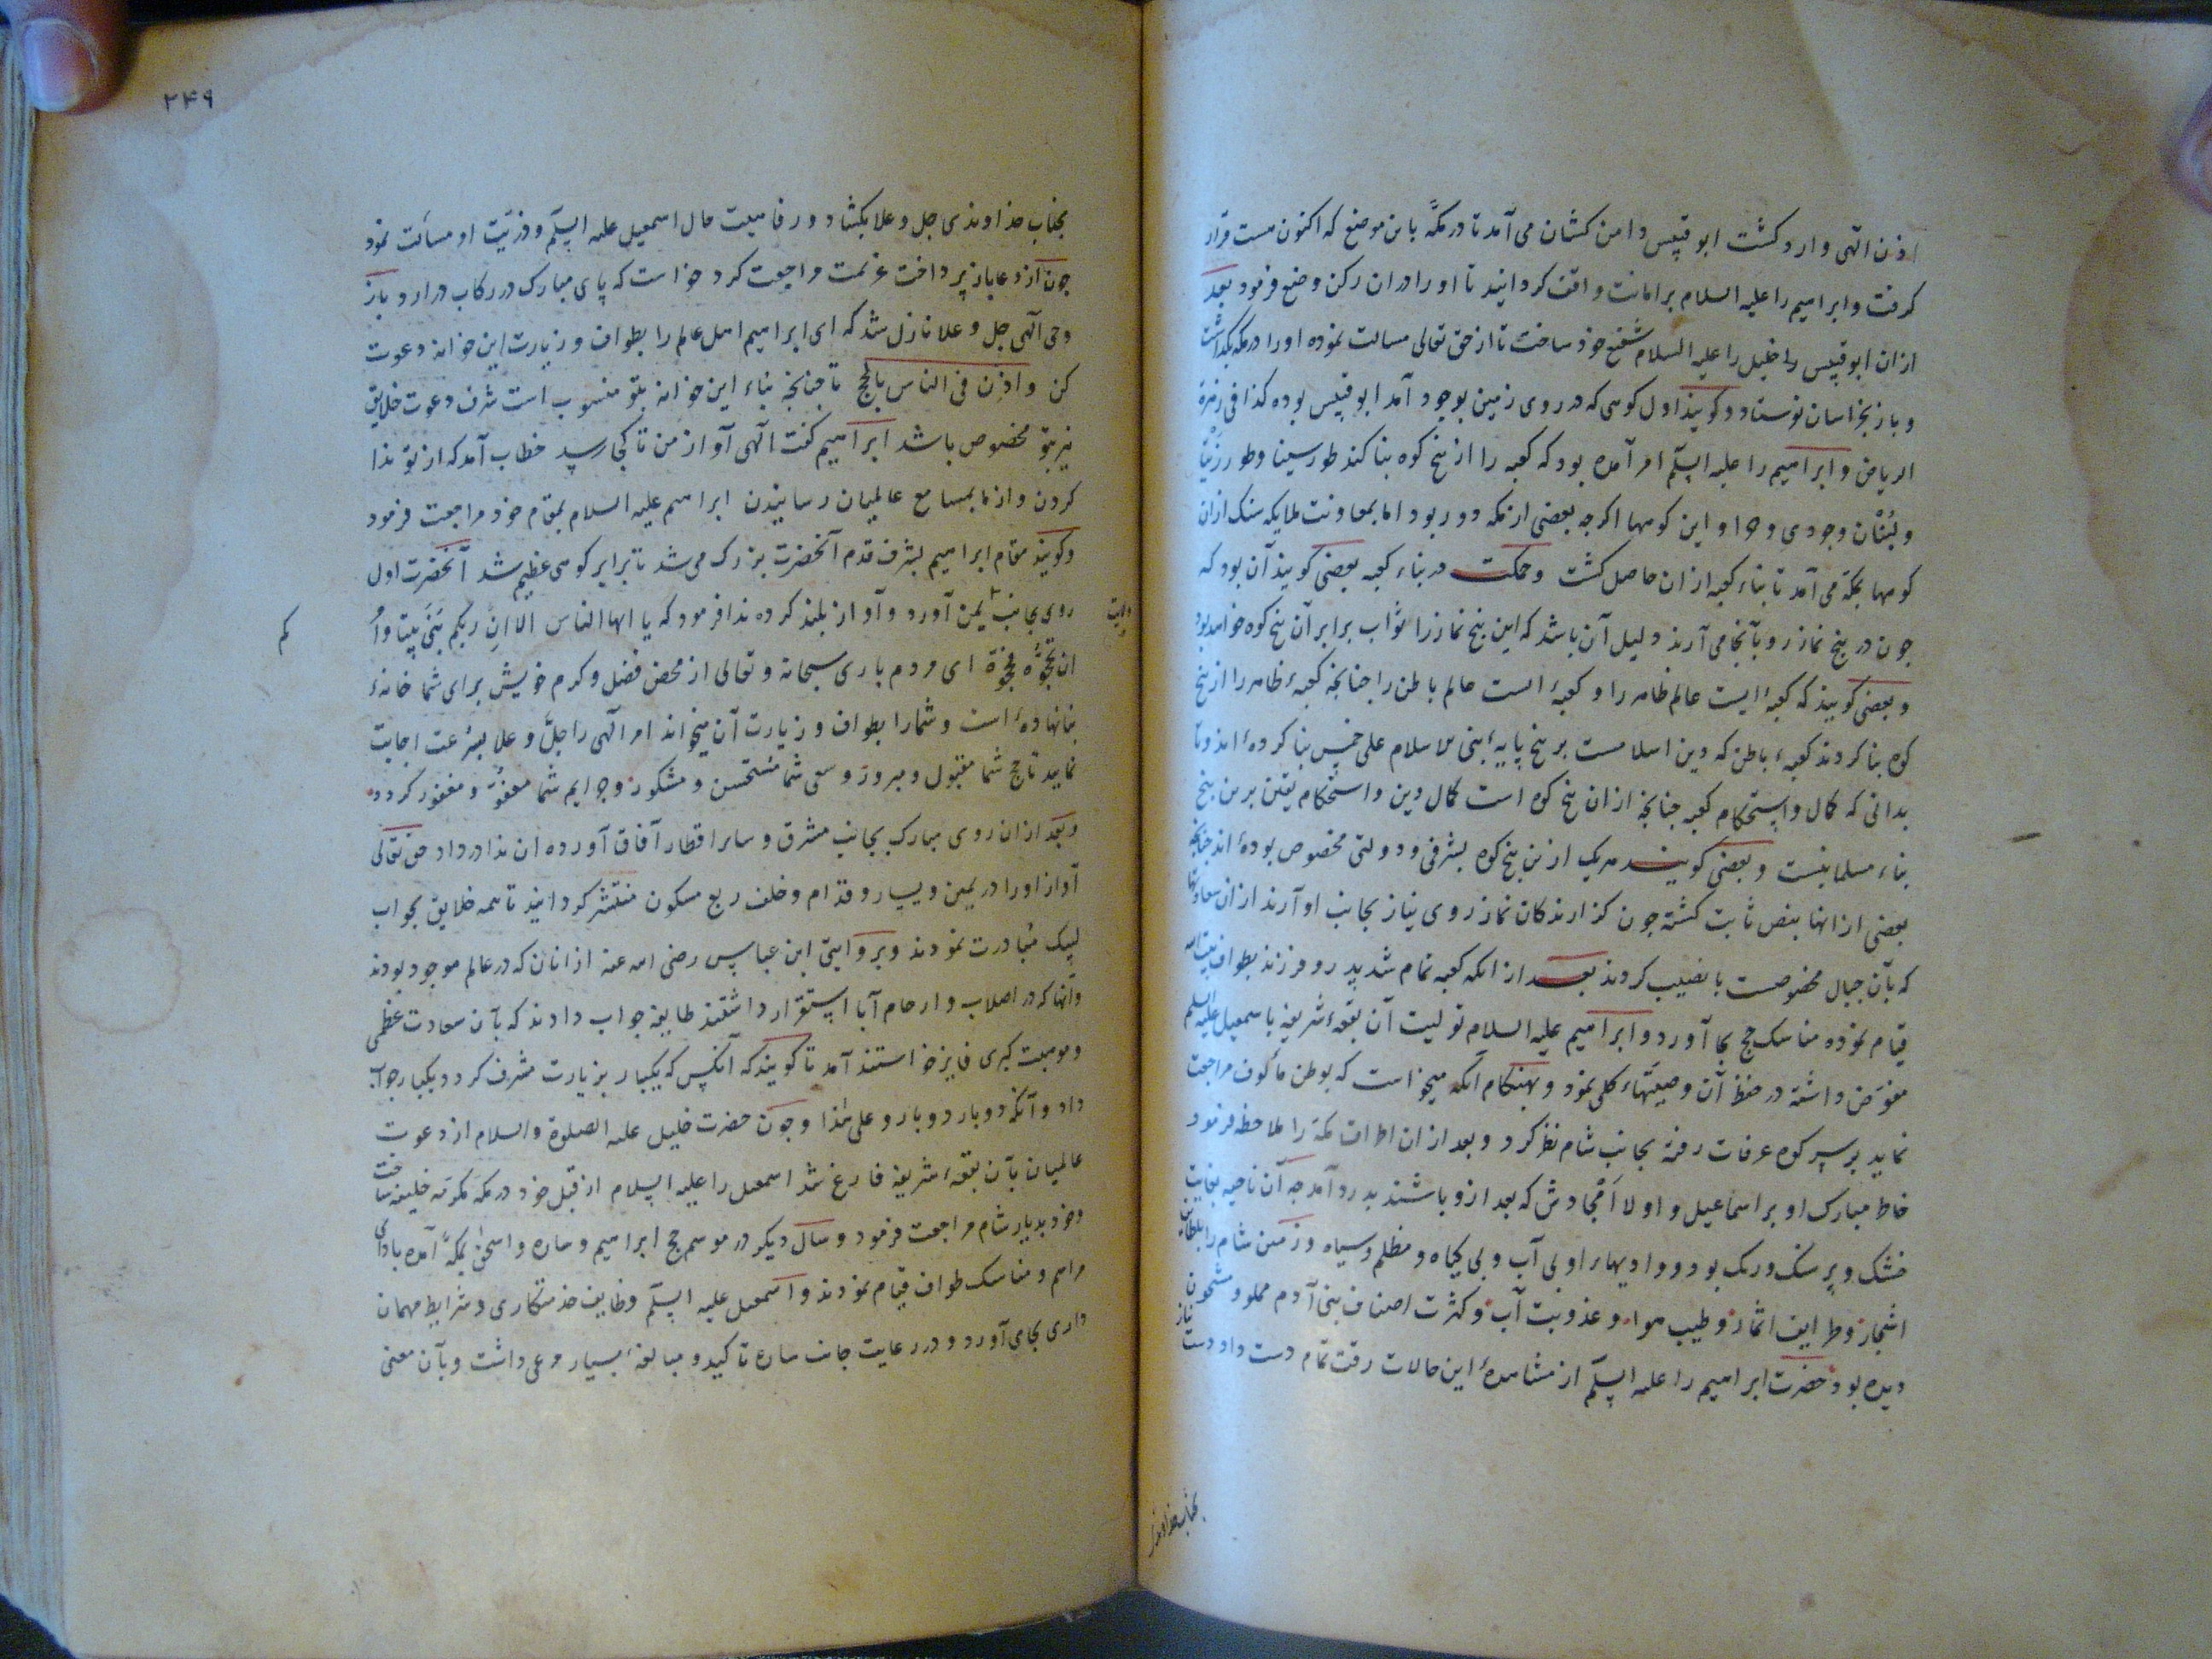 اذن الهی وارد کشت ابوقبیس دامن کشان می آمد تا در مکه باین موضع که اکنون هست قرار
کرفت و ابراهیم را علیه السلام بر امانت واقف کردانید تا او را در ان رکن وضع فرمود بعد
ازان ابوقبیس را خلیل را علیه السلام شفیع خود ساخت تا از حق تعالی مسالت نموده او را در مکه بگذاشت
و باز بخراسان نفرستاد و کویند اول کوهی که در روی زمین بوجود آمد ابوقبیس بوده کذا فی زهرة
الریاض و ابراهیم را علیه السلم امر آمده بود که کعبه را از پنج کوه بنا کند طور سینا و طور زیتا
و لبنان و جودی و حرا و این کوهها اکرچه بعضی از مکه دور بود اما بمعاونت ملایکه سنک ازان
کوهها بمکه می آمد تا بناء کعبه ازان حاصل کشت و حکمت در بناء کعبه بعضی کویند آن بود که
چون در پنج نماز رو بآنجا می آرند دلیل آن باشد که این پنج نماز را ثواب برابر آن پنج کوه خواهد بود
و بعضی کویند که کعبهٔ ایست عالم ظاهر را و کعبهٔ است عالم باطن را چنانچه کعبهٔ ظاهر را از پنج
کوه بنا کردند کعبهٔ باطن که دین اسلامست بر پنج پایهٔ بنی الاسلام علی خمس بنا کردهٔ اند و تا
بدانی که کمال و استحکام کعبه چنانچه ازان پنج کوه است کمال دین و استحکام یقین برین پنج
بناء مسلمانیست و بعضی کویند هریک ازین پنج کوه بشرفی و دولتی مخصوص بودهٔ اند چنانچه
بعضی ازانها بنص ثابت کشته چون کذارندکان نماز روی نیاز بجانب او آرند ازان سعادتها
که بآن جبال مخصوصست بانصیب کردند بعد ازانکه کعبه تمام شد پدر و فرزند بطواف بیت الله
قیام نموده مناسک حج بجا آورد و ابراهیم علیه السلام تولیت آن بقعهٔ شریفه باسمعیل علیه السلم
مفوض داشته در حفظ آن وصیتهاء کلی نمود و بهنکام آنکه میخواست که بوطن مألوف مراجعت
نماید بر سر کوه عرفات رفته بجانب شام نظر کرد و بعد ازان اطراف مکه را ملاحظه فرمود
خاطر مبارک او بر اسماعیل و اولاد امجادش که بعد ازو باشند بدرد آمد چه آن ناحیه بغایت
خشک و پر سنک و ریک بود و وادیهاء او بی آب و بی کیاه و مظلم و سیاه و زمین شام را بلطایف
اشجار و طرایف اثمار و طیب هوا و عذوبت آب و کثرت اصناف بنی آدم مملو و مشحون
دیده بود حضرت ابراهیم را علیه السلم از مشاهدهٔ این حالات رقت تمام دست داد دست نیاز
بجناب خداوندی
۲۴۹
بجناب خداوندی جل و علا بکشاد و رفاهیت حال اسمعیل علیه السلم و ذریت او مسألت نمود
چون از دعا باز پرداخت عزیمت مراجعت کرد خواست که پای مبارک در رکاب درارد باز
وحی الهی جل و علا نازل شد که ای ابراهیم اهل عالم را بطواف و زیارت این خوانه دعوت
کن واذن فی الناس بالحج تا چنانچه بناء این خوانه بتو منسوب است شرف دعوت خلایق
نیز بتو مخصوص باشد ابراهیم کفت الهی آواز من تا کجا رسد خطاب آمد که از تو ندا
کردن و از ما بمسامع عالمیان رسانیدن ابراهیم علیه السلام بمقام خود مراجعت فرمود
و کویند مقام ابراهیم بشرف قدم آنحضرت بزرک می شد تا برابر کوهی عظیم شد آنحضرت اول
روی بجانب یمن آورد و آواز بلند کرده ندا فرمود که یا ایها الناس الا ان ربکم بنی بیتا و امر
کم
ان تحجوه فحجوه ای مردم باری سبحانه و تعالی از محض فضل و کرم خویش برای شما خانهٔ
بنا نهادهٔ است و شما را بطواف و زیارت آن میخواند امر الهی را جل و علا بسرعت اجابت
نمایید تا حج شما مقبول و مبرور و سعی شما مستحسن و مشکور و جرایم شما معفو و مغفور کردد
و بعد ازان روی مبارک بجانب مشرق و سایر اقطار آفاق آورده ان ندا در داد حق تعالی
آواز او را در یمین و یسار و قدام و خلف ربع مسکون منتشر کردانید تا همه خلایق بجواب
لبیک مبادرت نمودند و بروایتی ابن عباس رضی الله عنه ازانان که در عالم موجود بودند
وآنها که در اصلاب و ارحام آبا استقرار داشتند طایفه جواب دادند که بآن سعادت عظمی
و موهبت کبری فایز خواستند آمد تا کویند که آنکس که یکبار بزیارت مشرف کردد یکبار جواب
داد و آنکه دو بار دو بار و علی هذا و چون حضرت خلیل علیه الصلوة والسلام از دعوت
عالمیان بآن بقعهٔ شریفه فارغ شد اسمعیل را علیه السلام از قبل خود در مکه مکرمه خلیفه ساخت
و خود بدیار شام مراجعت فرمود و سال دیکر در موسم حج ابراهیم و ساره و اسحق بمکه آمده باداى
مراسم و مناسک طواف قیام نمودند و اسمعیل علیه السلم وظایف خدمتکاری و شرایط مهمان
داری بجای آورد و در رعایت جانب ساره تاکید و مبالغهٔ بسیار مرعی داشت و بآن معنی